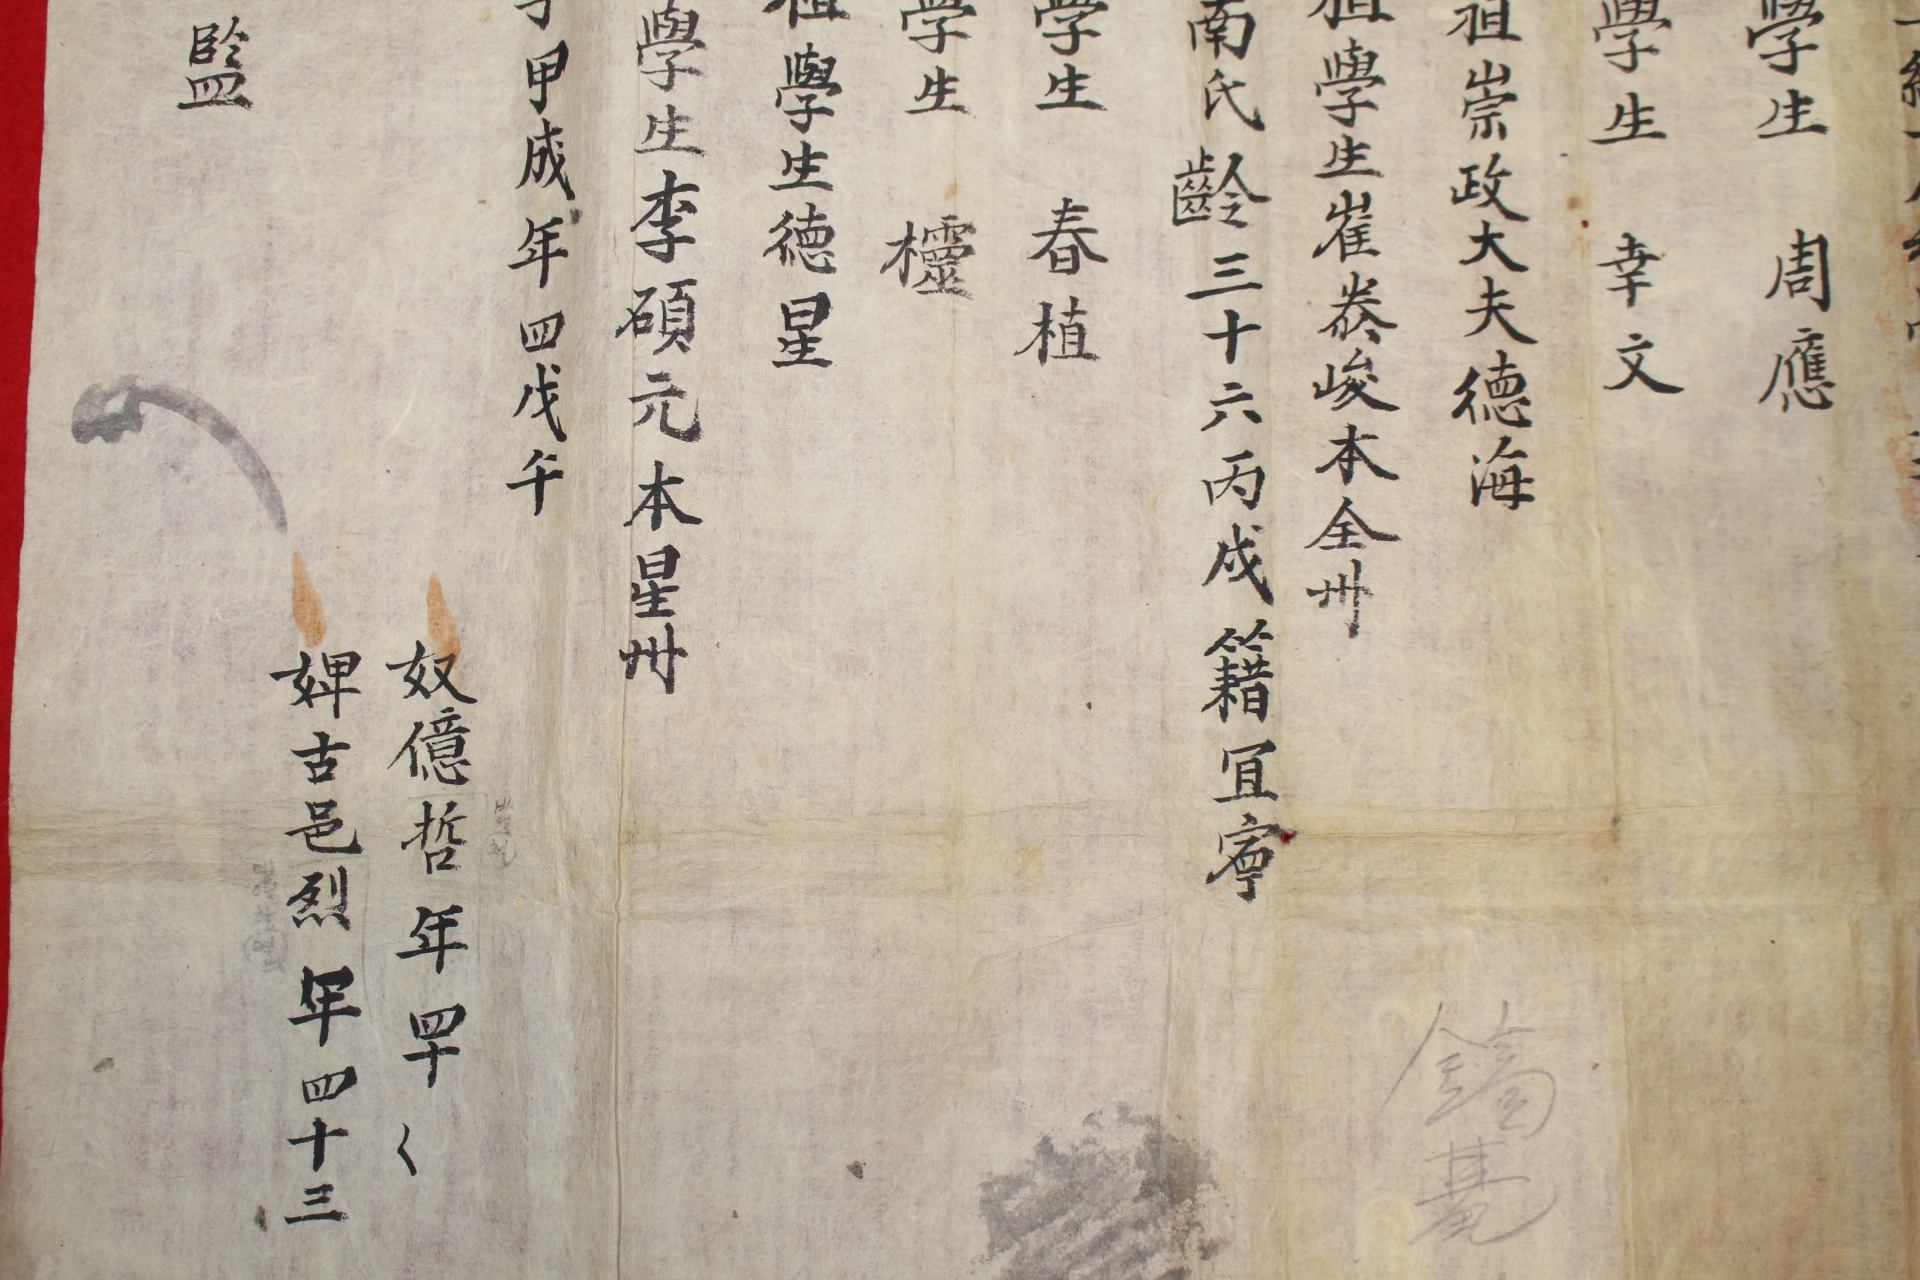 學生 周應
學生 幸文
祖崇政大夫德海
祖學生崔㳟峻本全州
南氏齡三十六丙戌籍冝寧
學生 春植
學生 櫺
祖學生德星
學生李碩元本星州
子甲成年四戊午
奴億哲年四十
婢古邑烈年四十三
監